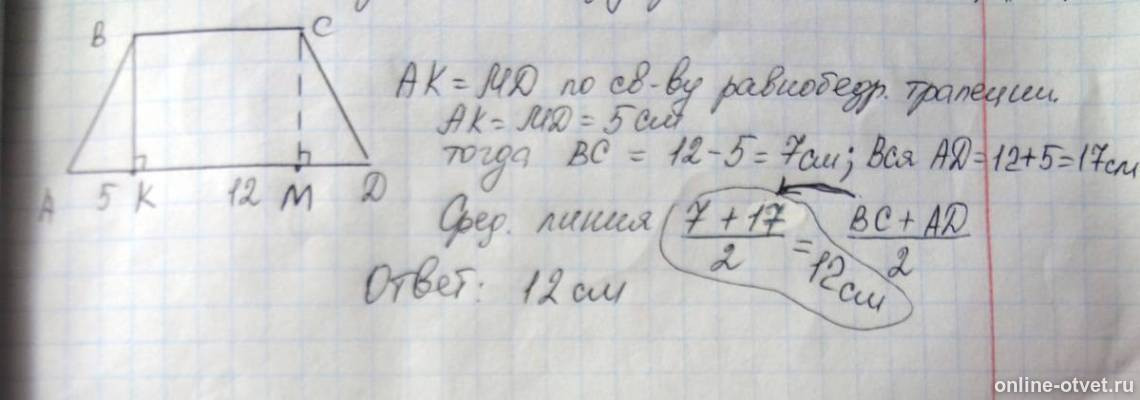 B C
AK = MD по св-ву равнобедр. трапеции.
AK = MD = 5 см
тогда BC = 12 - 5 = 7 см; Вся AD = 12 + 5 = 17 см
A 5 K 12 M D
Сред. линия (7 + 17)/2 = 12 см (BC + AD)/2
Ответ: 12 см
online-otvet.ru